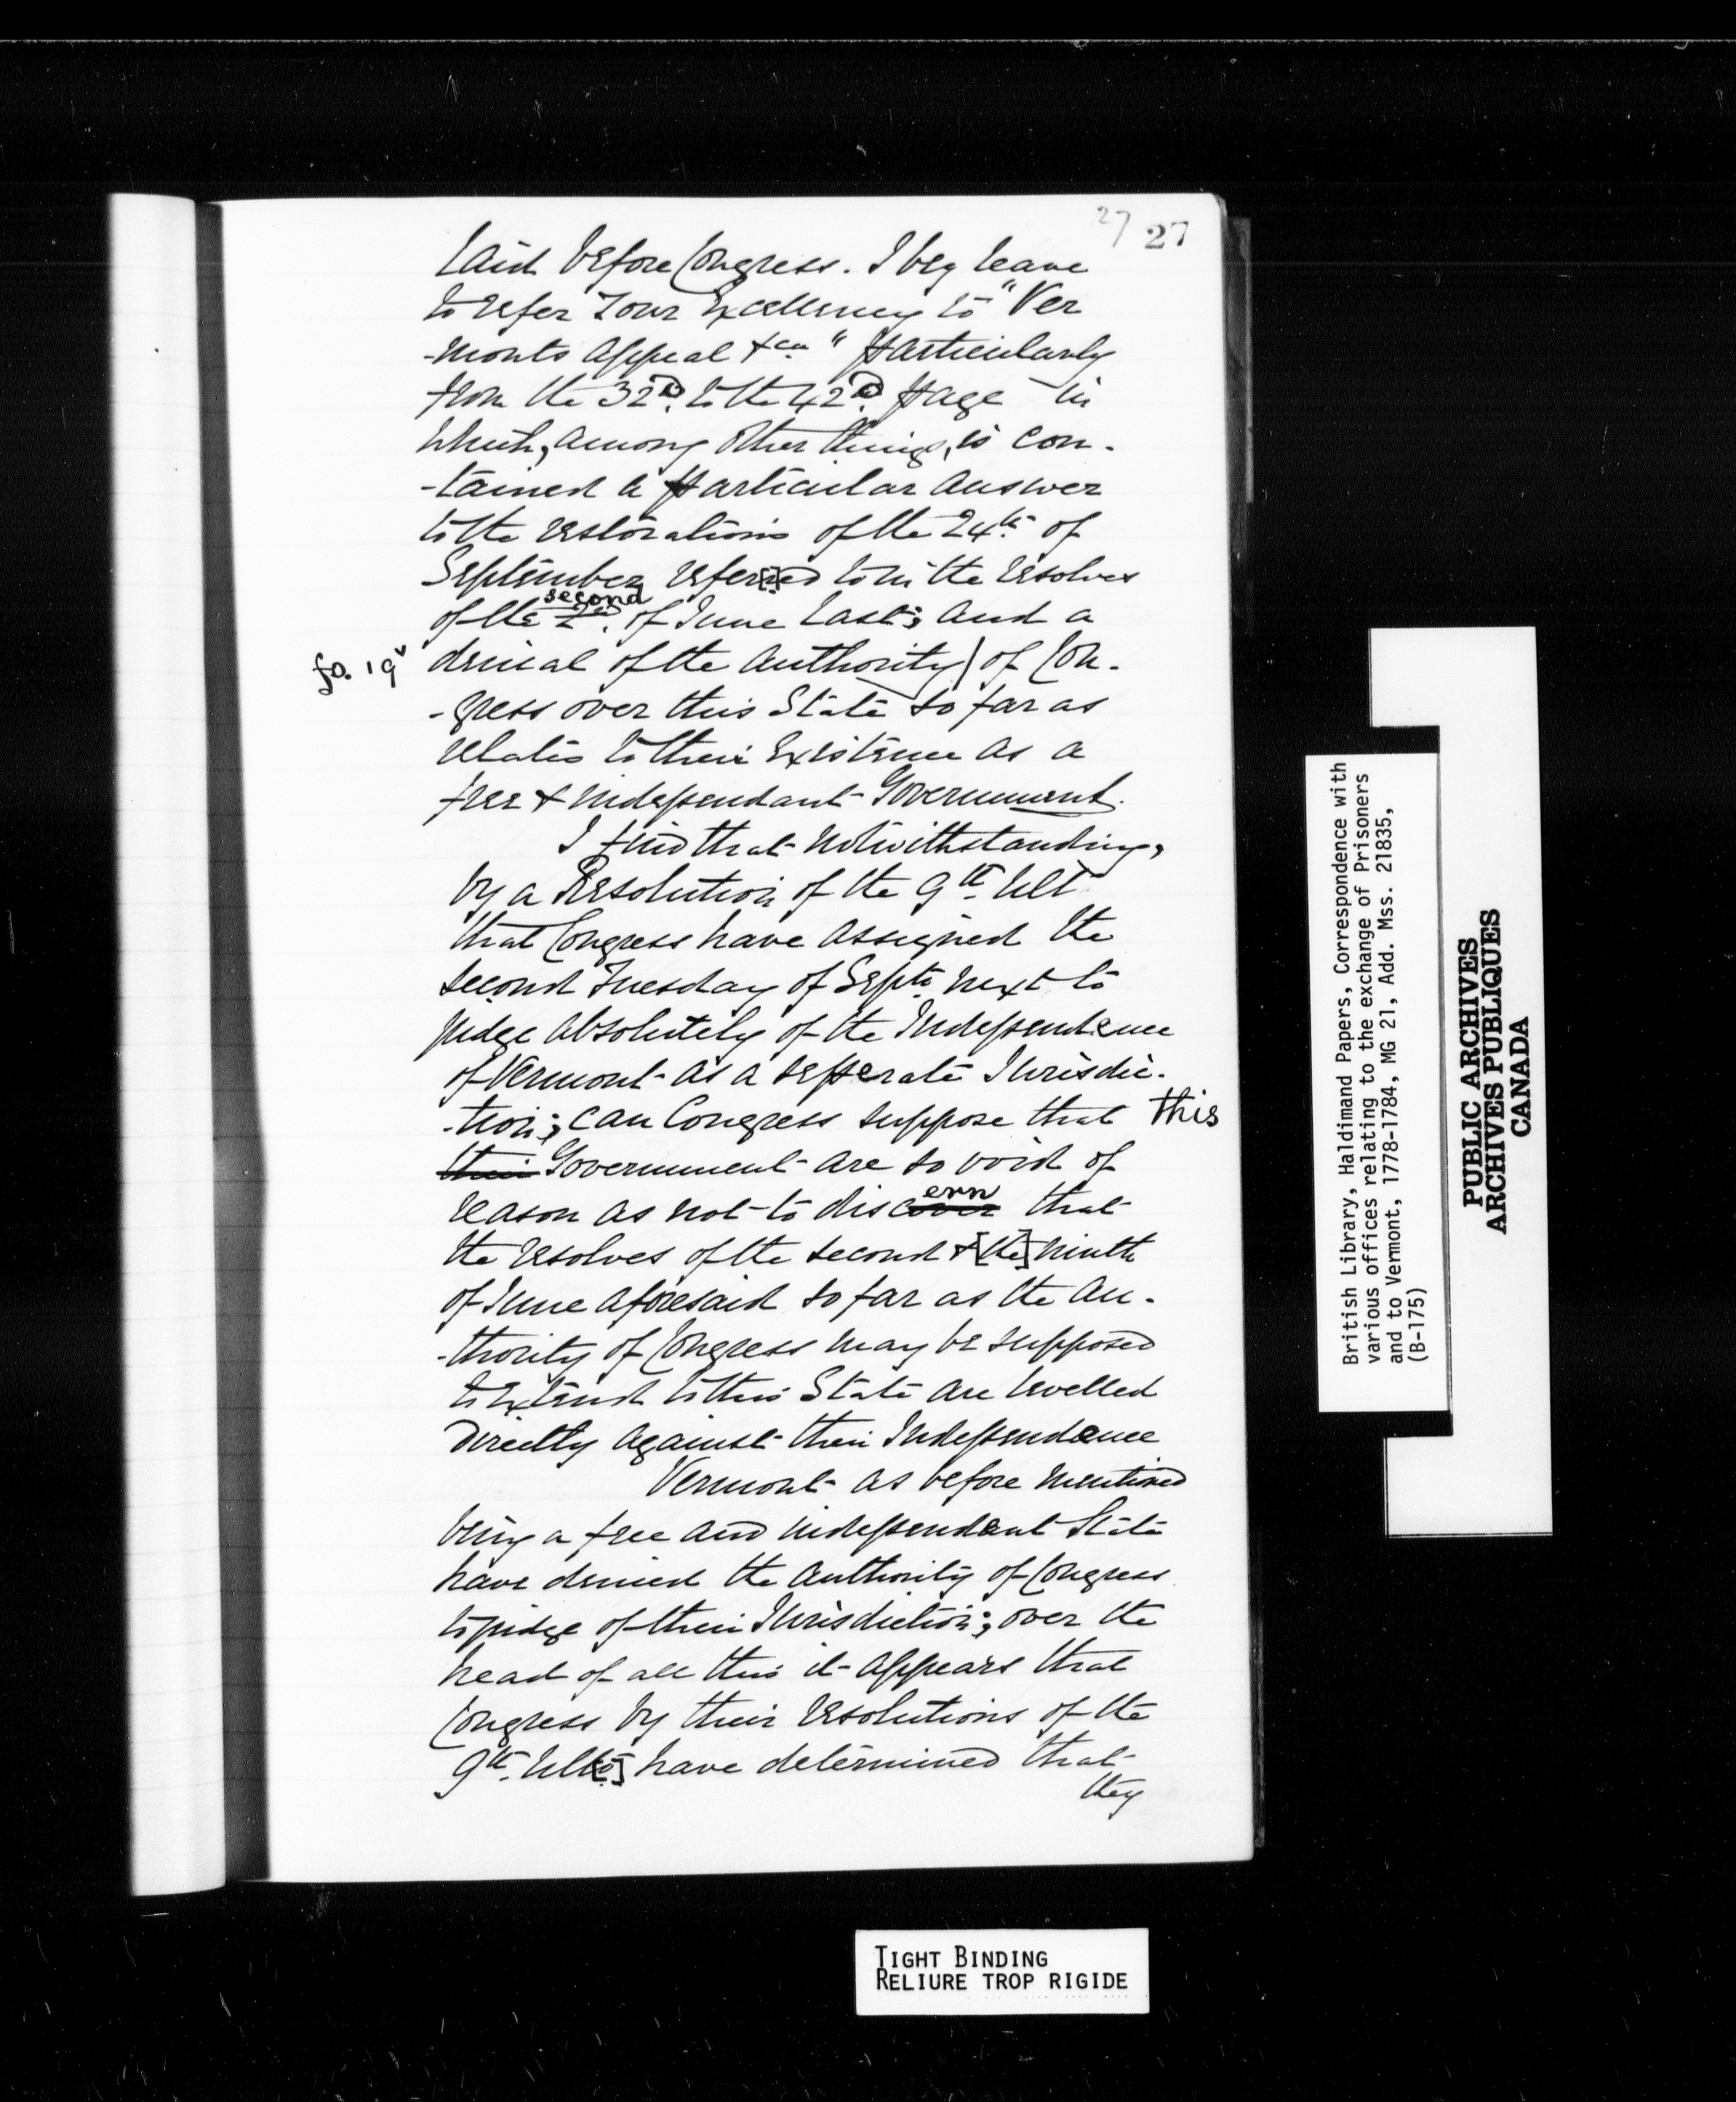 27 27
Laid before Congress. I beg leave
to refer Your Excellency to "Ver
-monts Appeal &ca." Particularly
from the 32D. to the 42D. Page in
which, among other things, is con-
-tained a Particular answer
to the restorations of the 24th. of
September refer[r]ed to in the resolves
of the second 2d. of June last; and a
fo. 19v denial of the Authority | of Con-
-gress over this State so far as
relates to their Existence as a
free & independant Government.
I find that notwithstanding,
by a Resolution of the 9th. Ult
that Congress have assigned the
second Tuesday of Septr. next to
judge absolutely of the Independence
of Vermont as a sepperate Jurisdic-
-tion; can Congress suppose that this
their Government are so void of
reason as not to discover ern that
the resolves of the second & [the] ninth
of June aforesaid so far as the au-
-thority of Congress may be supposed
to Extend to this State are levelled
Directly against their Independence
Vermont as before mentioned
being a free and independent State
have denied the authority of Congress
to judge of their Jurisdiction; over the
head of all this it appears that
Congress by their resolutions of the
9th. Ult[o] have determined that
they
British Library, Haldimand Papers, Correspondence with
various offices relating to the exchange of Prisoners
and to Vermont, 1778-1784, MG 21, Add. Mss. 21835,
(B-175)
PUBLIC ARCHIVES
ARCHIVES PUBLIQUES
CANADA
TIGHT BINDING
RELIURE TROP RIGIDE